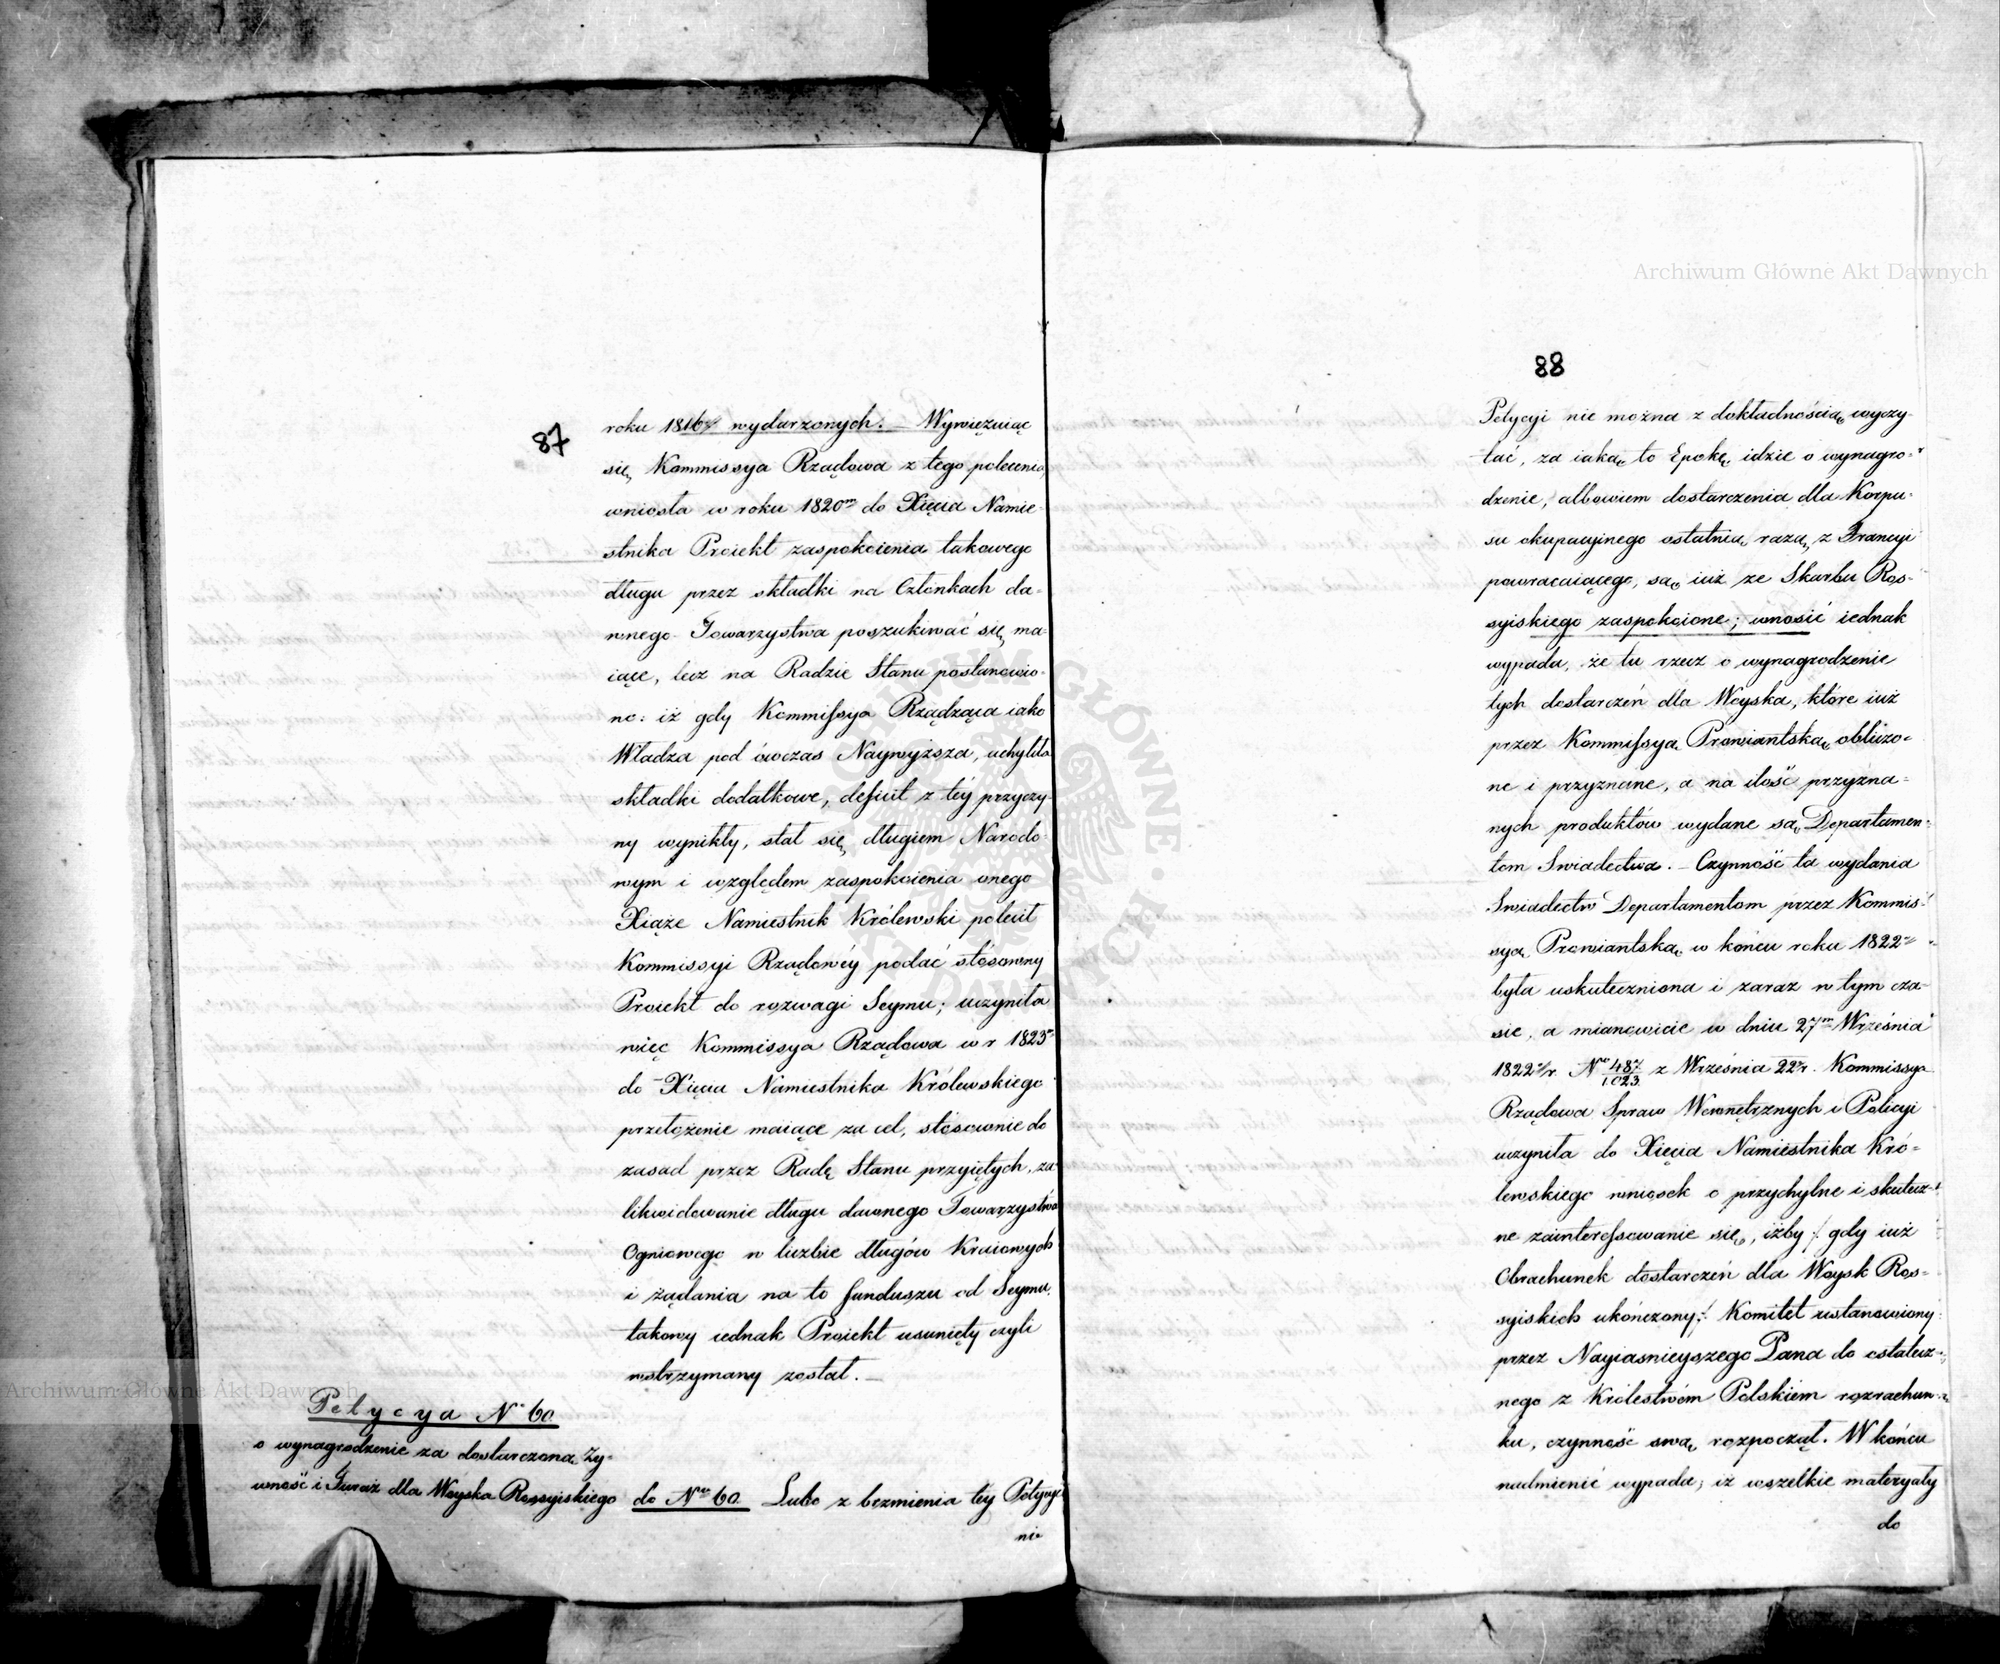 87
roku 1816go wydarzonych. – Wywięzuiąc
się Kommissya Rządowa z tego polecenia,
wniosła w roku 1820m do Xięcia Namie-
stnika Proiekt zaspokoienia takowego
długu przez składki na Członkach da-
wnego Towarzystwa poszukiwać się ma-
iące, lecz na Radzie Stanu postanowio-
no: iż gdy Kommissya Rządząca iako
Władza pod ówczas Naywyższa, uchyliła
składki dodatkowe, deficit z téy przyczy-
ny wynikły, stał się długiem Narodo-
wym i względem zaspokoienia onego
Xiąże Namiestnik Królewski polecił
Kommissyi Rządowéy podać stósowny
Proiekt do rozwagi Seymu; uczyniła
więc Kommissya Rządowa w r 1823m
do Xięcia Namiestnika Królewskiego
przełożenie maiące za cel, stósownie do
zasad przez Radę Stanu przyiętych, za-
likwidowanie długu dawnego Towarzystwa
Ogniowego w liczbie długów Kraiowych
i żądania na to funduszu od Seymu,
takowy iednak Proiekt usunięty czyli
wstrzymany został. –
Petycya No 60
o wynagrodzenie za dostarczoną Ży-
wność i Furaż dla Woyska Rossyiskiego
do Nru 60 Lubo z brzmienia tey Petycyi
nie
88
Petycyi nie można z dokładnością wyczy-
tać, za iaką to Epokę idzie o wynagro-
dzenie, albowiem dostarczenia dla Korpu-
su okupacyjnego ostatnią razą z Francyi
powracaiącego, są iuż ze Skarbu Ros-
syiskiego zaspokoione; wnosić iednak
wypada, że tu rzecz o wynagrodzenie
tych dostarczeń dla Woyska, które iuż
przez Kommissyą Prowiantską obliczo-
ne i przyznane, a na ilość przyzna-
nych produktów wydane są Departamen-
tom Swiadectwa. – Czynność ta wydania
Swiadectw Departamentom przez Kommis-
syą Prowiantską w końcu roku 1822go
była uskuteczniona i zaraz w tym cza-
sie, a mianowicie w dniu 27m Września
1822 r. No 487/1023 z Września 22 r. Kommissya
Rządowa Spraw Wewnętrznych i Policyi
uczyniła do Xięcia Namiestnika Kró-
lewskiego wniosek o przychylne i skutecz-
ne zainteressowanie się, iżby /: gdy iuż
Obrachunek dostarczeń dla Woysk Ros-
syiskich ukończony :/ Komitet ustanowiony
przez Nayiasnieyszego Pana do ostatecz-
nego z Królestwem Polskiem rozrachun-
ku, czynność swą rozpoczął. W końcu
nadmienić wypada; iż wszelkie materyały
do
Archiwum Główne Akt Dawnych
Archiwum Główne Akt Dawnych